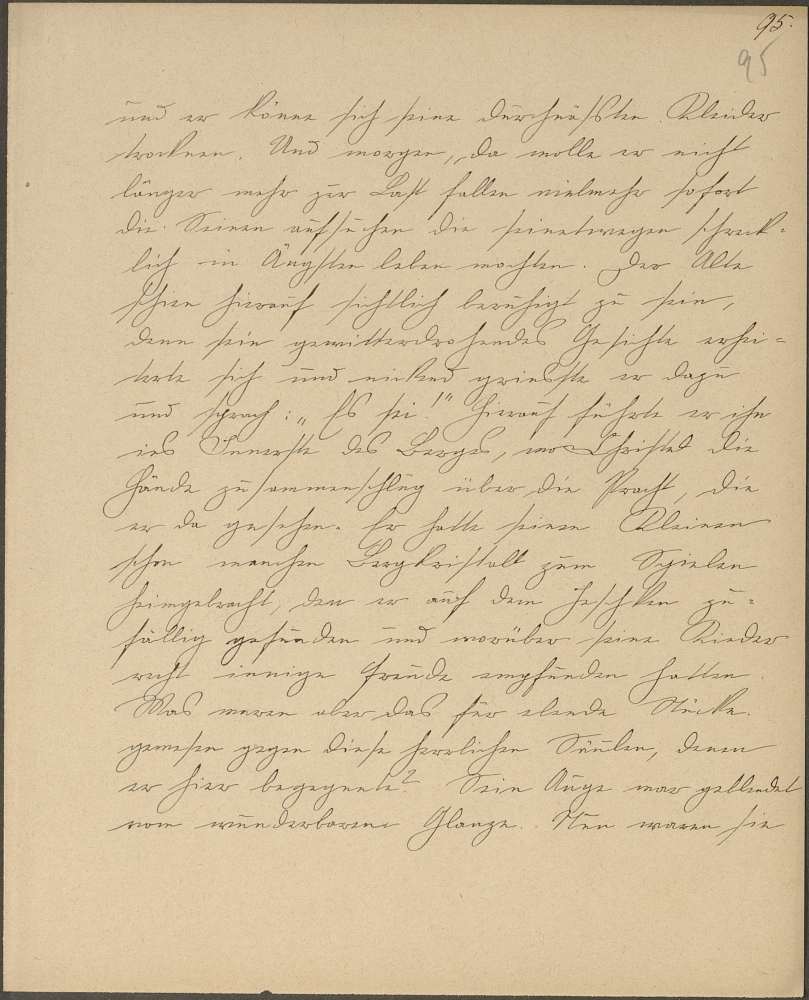 95.
95
und er könne sich seine durchnäßten Kleider
trocknen. Und morgen, da wolle er nicht
länger mehr zur Last fallen vielmehr sofort
die Seinen aufsuchen die seinetwegen schreck-
lich in Ängsten leben mochten. Der Alte
schien hierauf sichtlich beruhigt zu sein,
denn sein gewitterdrohendes Gesichte erhei-
terte sich und nickend grinste er dazu
und sprach: „Es sei!" Hierauf führte er ihn
ins Innerste des Berges, wo Christel die
Hände zusammenschlug über die Pracht, die
er da gesehen. Er hatte seinen Kleinen
schon manchen Bergkristall zum Spielen
heimgebracht, den er auf dem Jeschken zu-
fällig gefunden und worüber seine Kinder
recht innige Freude empfunden hatten.
Was waren aber das für elende Stücke
gewesen gegen diese herrlichen Säulen, denen
er hier begegnete? Sein Auge war geblendet
vom wunderbaren Glanze. Nun waren sie